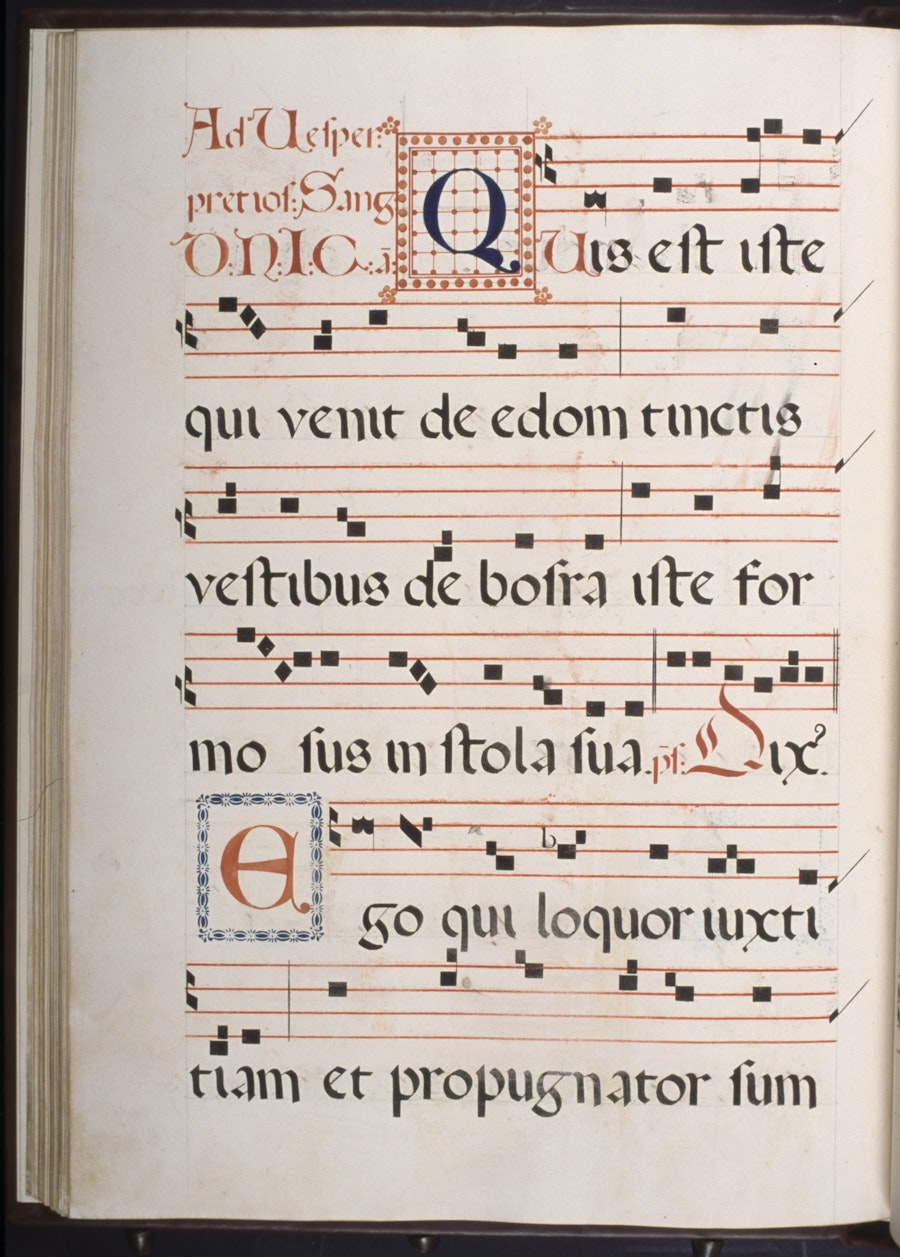 Ad Uesper:
pretios: Sang
D: N: I: C: ā:
QUis est iste
qui venit de edom tinctis
vestibus de bosra iste for
mo sus in stola sua. ps: Dix.
Ego qui loquor iuxti
tiam et propugnator sum